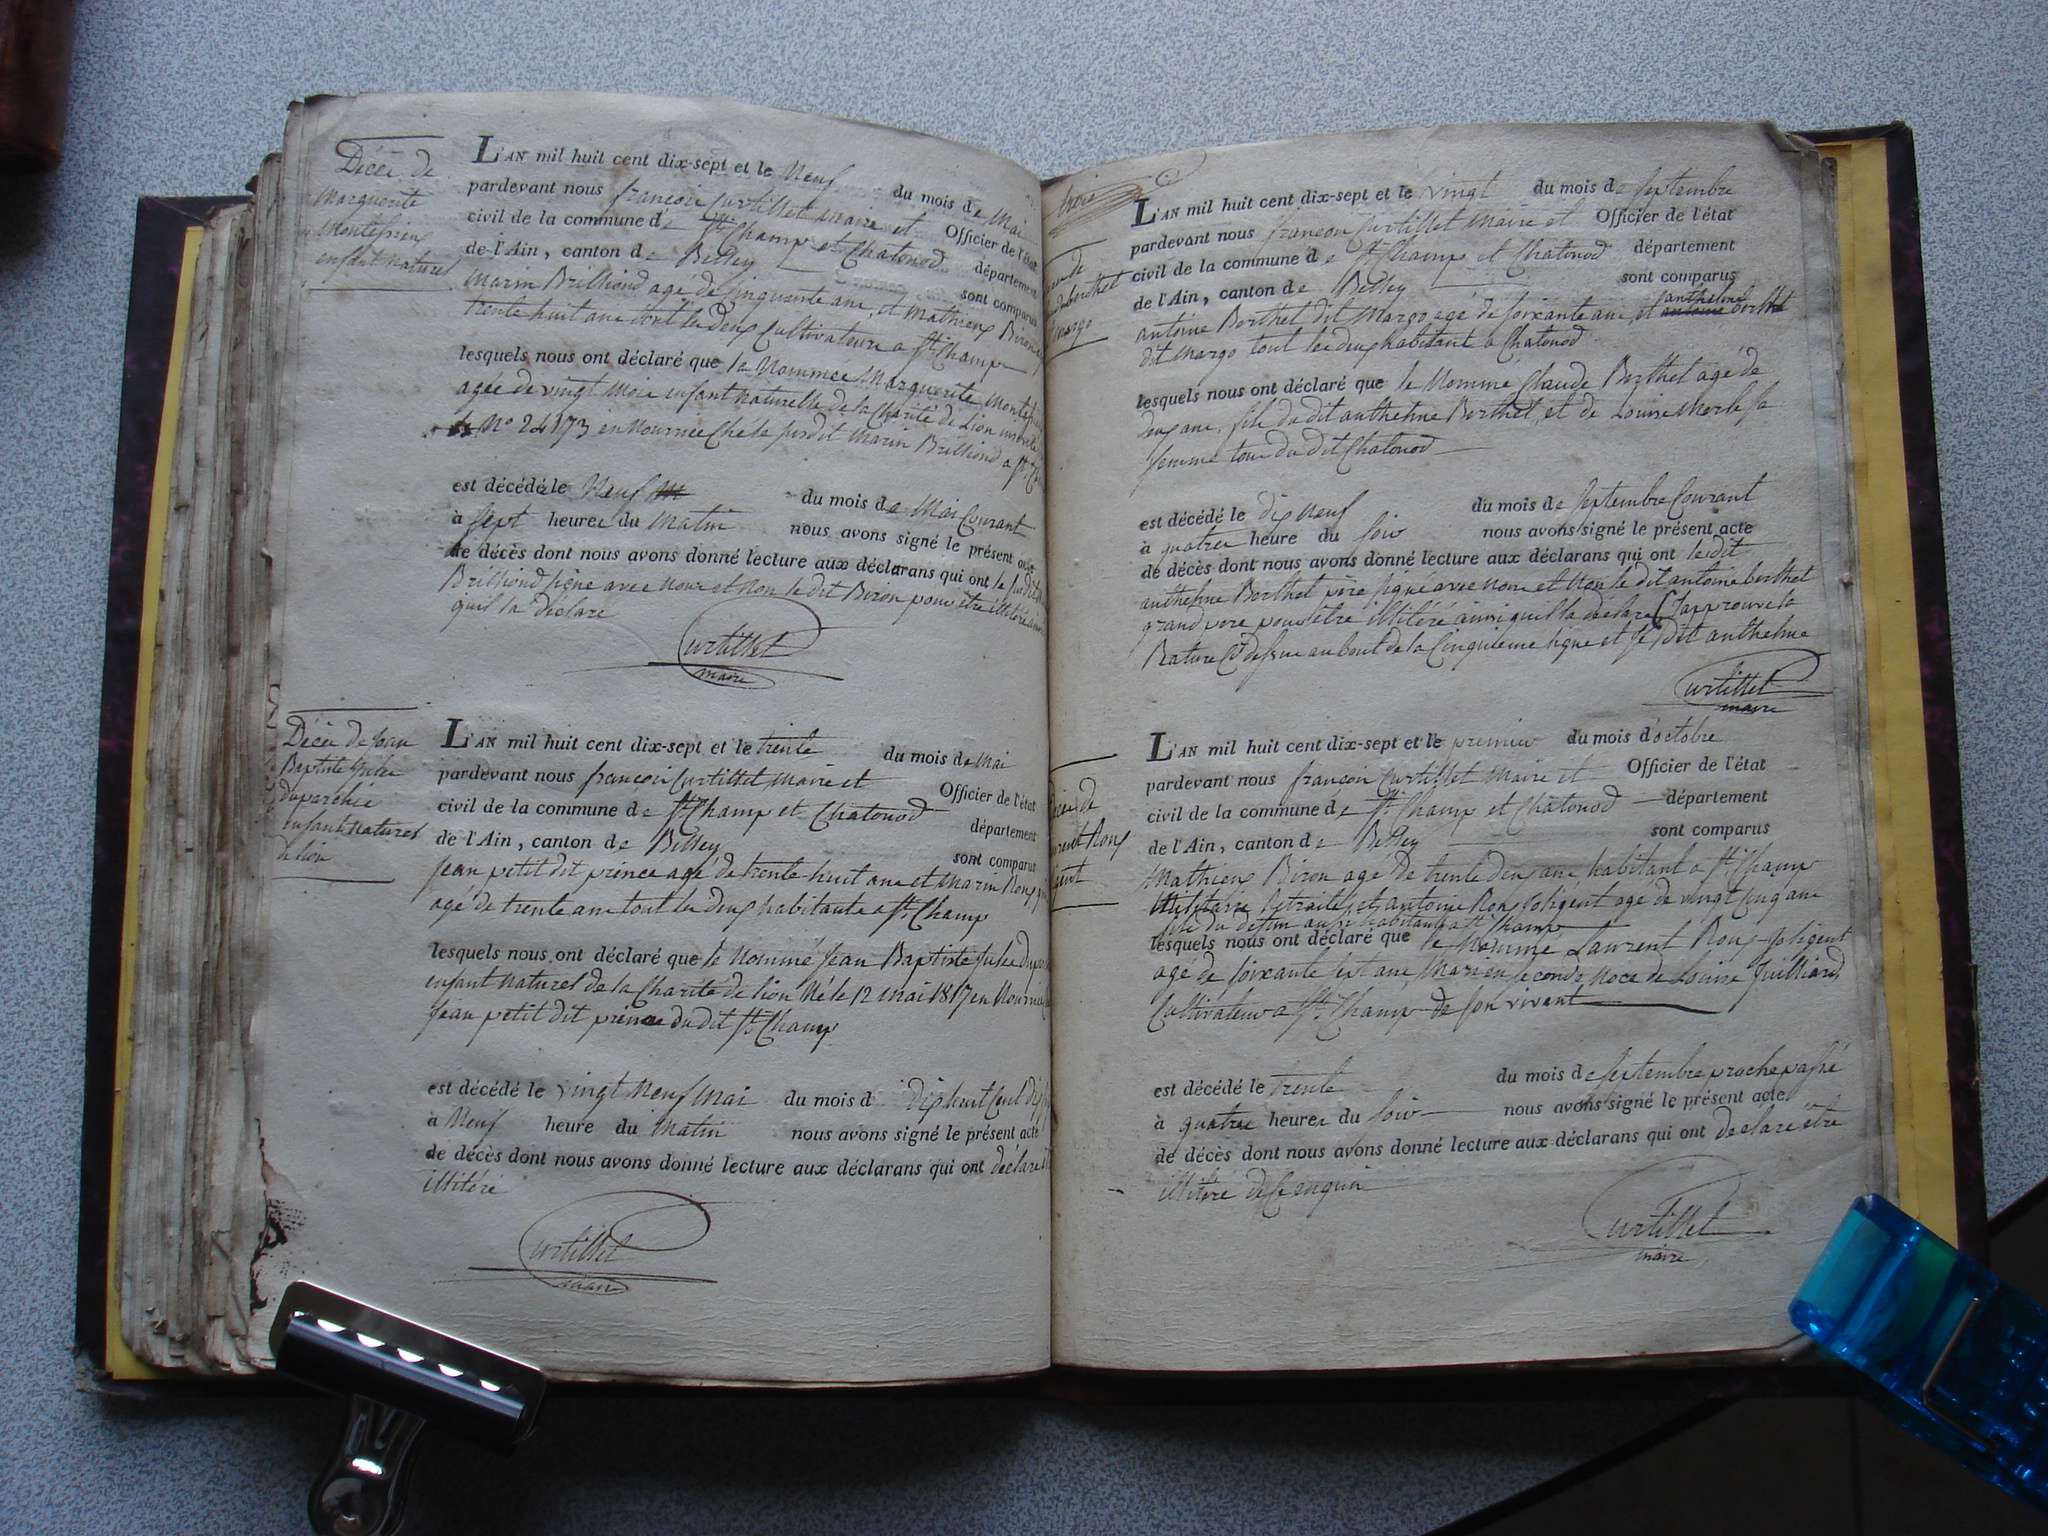 Décé de
Marguerite
enfant naturel
L'AN mil huit cent dix-sept et le Neuf du mois de Mai
pardevant nous françois Curtillet Maire et Officier de l'état
civil de la commune de St Champ et Chatonod département
de l'Ain, canton de Belley sont comparus
Marin Brilliond agé de Cinquante ans, et Mathieux Biron
trente huit ans tout les deux Cultivateurs a St Champ
lesquels nous ont déclaré que la Nommée Marguerite
agée de vingt mois enfant naturelle de la Charité de Lion
No 24173 en Nourrice Ché le susdit Marin Brilliond a St
est décédé le Neuf du mois de Mai Courant
à Sept heures du Matin nous avons signé le présent acte
de décès dont nous avons donné lecture aux déclarans qui ont le susdit
Brilliond signé avec nous et non le dit Biron pour être illitéré
quil la déclaré
Curtillet
maire
Décé de Jean
Baptiste Jules
enfant naturel
de lion
L'AN mil huit cent dix-sept et le trente du mois de Mai
pardevant nous françois Curtillet Maire et Officier de l'état
civil de la commune de St Champ et Chatonod département
de l'Ain, canton de Belley sont comparus
Jean petit dit prince agé de trente huit ans et Marin Roux
agé de trente ans tout les deux habitants a St Champ
lesquels nous ont déclaré que le Nommé Jean Baptiste Jules
enfant naturel de la Charité de lion Né le 12 mai 1817 en Nourrice
Jean petit dit prince du dit St Champ
est décédé le vingt Neuf Mai du mois d dix huit Cent dix
à Neuf heure du Matin nous avons signé le présent acte
de décès dont nous avons donné lecture aux déclarans qui ont déclaré
illitéré
Curtillet
maire
berthet
margo
L'AN mil huit cent dix-sept et le vingt du mois de Septembre
pardevant nous françois Curtillet Maire et Officier de l'état
civil de la commune de St Champ et Chatonod département
de l'Ain, canton de Belley sont comparus
anthelme
antoine Berthet dit Margo agé de soixante ans, et antoine berthet
dit Margo tout les deux habitant a Chatonod
lesquels nous ont déclaré que le Nommé Claude Berthet agé de
deux ans, fils du dit anthelme Berthet, et de Louise Merle sa
femme tous du dit Chatonod
est décédé le dix Neuf du mois de Septembre Courant
à quatres heure du Soir nous avons signé le présent acte
de décès dont nous avons donné lecture aux déclarans qui ont le dit
anthelme Berthet père signé avec nous et non le dit antoine berthet
grand pere pour être illitéré ainsi quil la déclaré J'approuve la
Rature Ci dessus au bout de la Cinquieme ligne et le dit anthelme
Curtillet
maire
Décé de
L'AN mil huit cent dix-sept et le premier du mois d'octobre
pardevant nous françois Curtillet Maire et Officier de l'état
civil de la commune de St Champ et Chatonod département
de l'Ain, canton de Belley sont comparus
Mathieux Biron agé de trente deux ans habitant a St Champ
Militaire Retraité, et antoine Roux Joligent agé de vingt cinq ans
fils du défun aussi habitant a St Champ
lesquels nous ont déclaré que le Nommé Laurent Roux Joligent
agé de soixante sept ans, Marié en seconde Noce de Louise Juilliard
Cultivateur a St Champ de son vivant
est décédé le trente du mois de Septembre proche passé
à quatres heures du Soir nous avons signé le présent acte
de décès dont nous avons donné lecture aux déclarans qui ont déclaré être
illitéré de ce enquis
Curtillet
maire